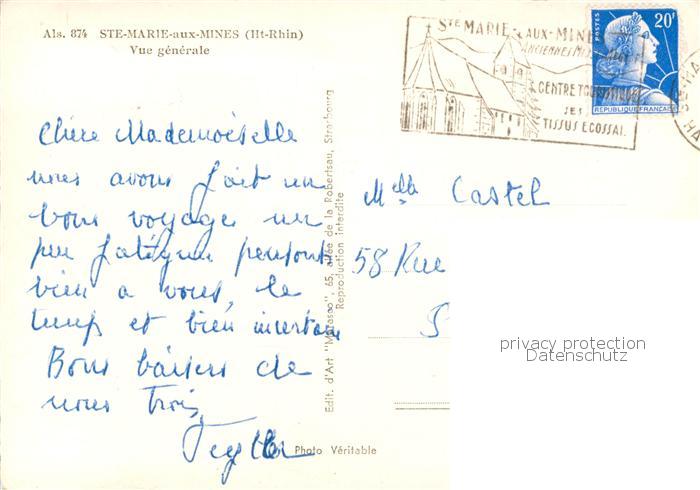 Als. 874 STE-MARIE-aux-MINES (Ht-Rhin)
Vue générale
STE MARIE-AUX-MIN
ANCIENNES MI
CENTRE TOURISTIQUE
SES
TISSUS ECOSSAI
POSTES
20F
REPUBLIQUE FRANÇAISE
Chère Mademoiselle
nous avons fait un
bons voyage un
peu fatigue pensont
bien a vous, le
temps et bien incertain
Bons baisers de
nous trois
Melle Castel
58 Rue
Edit. d'Art "Marasco", 65, allée de la Robertsau, Strasbourg
Reproduction interdite
Photo Véritable
privacy protection
Datenschutz